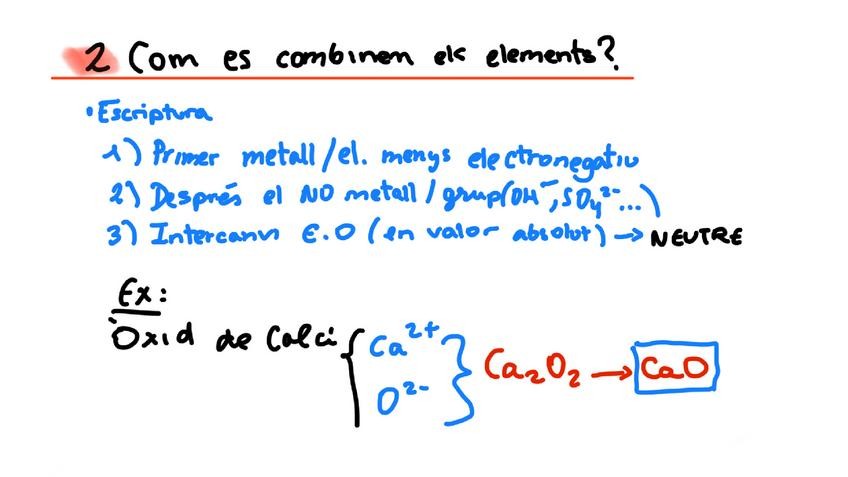 2 Com es combinen els elements?
• Escriptura
1) Primer metall/el. menys electronegatiu
2) Després el NO metall/grup(OH⁻, SO₄²⁻...)
3) Intercanvi E.O (en valor absolut) → NEUTRE
Ex:
Òxid de Calci { Ca²⁺ O²⁻ } Ca₂O₂ → CaO